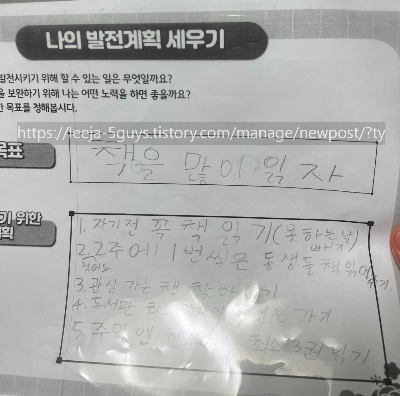 나의 발전계획 세우기
발전시키기 위해 할 수 있는 일은 무엇일까요?
보완하기 위해 나는 어떤 노력을 하면 좋을까요?
목표를 정해봅시다.
https://leeja-5guys.tistory.com/manage/newpost/?ty
목표
책을 많이 읽자
위한
1. 자기전 꼭 책 읽기(못하는날
빠지기)
2. 2주에 1번씩은 동생들 책 읽어
적어도
주기
3. 관심 가는 책 찾아
4. 도서관
가기
5. 주말엔 최소 3권 읽기